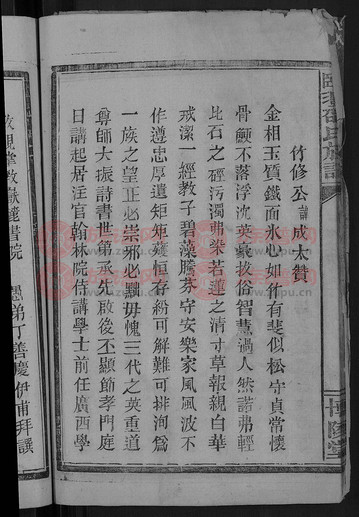 竹修公諱成太贊
金相玉質鐵面氷心如竹有斐似松守貞常懷
骨鯁不落浮沈英豪拔俗智慧過人然諾弗輕
比石之硜污濁弗染若蓮之清寸草報親白華
戒潔一經教子碧藻騰芬守安樂家風風波不
作遵忠厚遺矩矩矱恒存紛可解難可排洵爲
一族之望正必崇邪必黜毋愧三代之英重道
尊師大振詩書世第承先啟後丕顯節孝門庭
日講起居注官翰林院侍講學士前任廣西學
書院
愚弟丁善慶伊甫拜譔
氏族譜
博陵堂